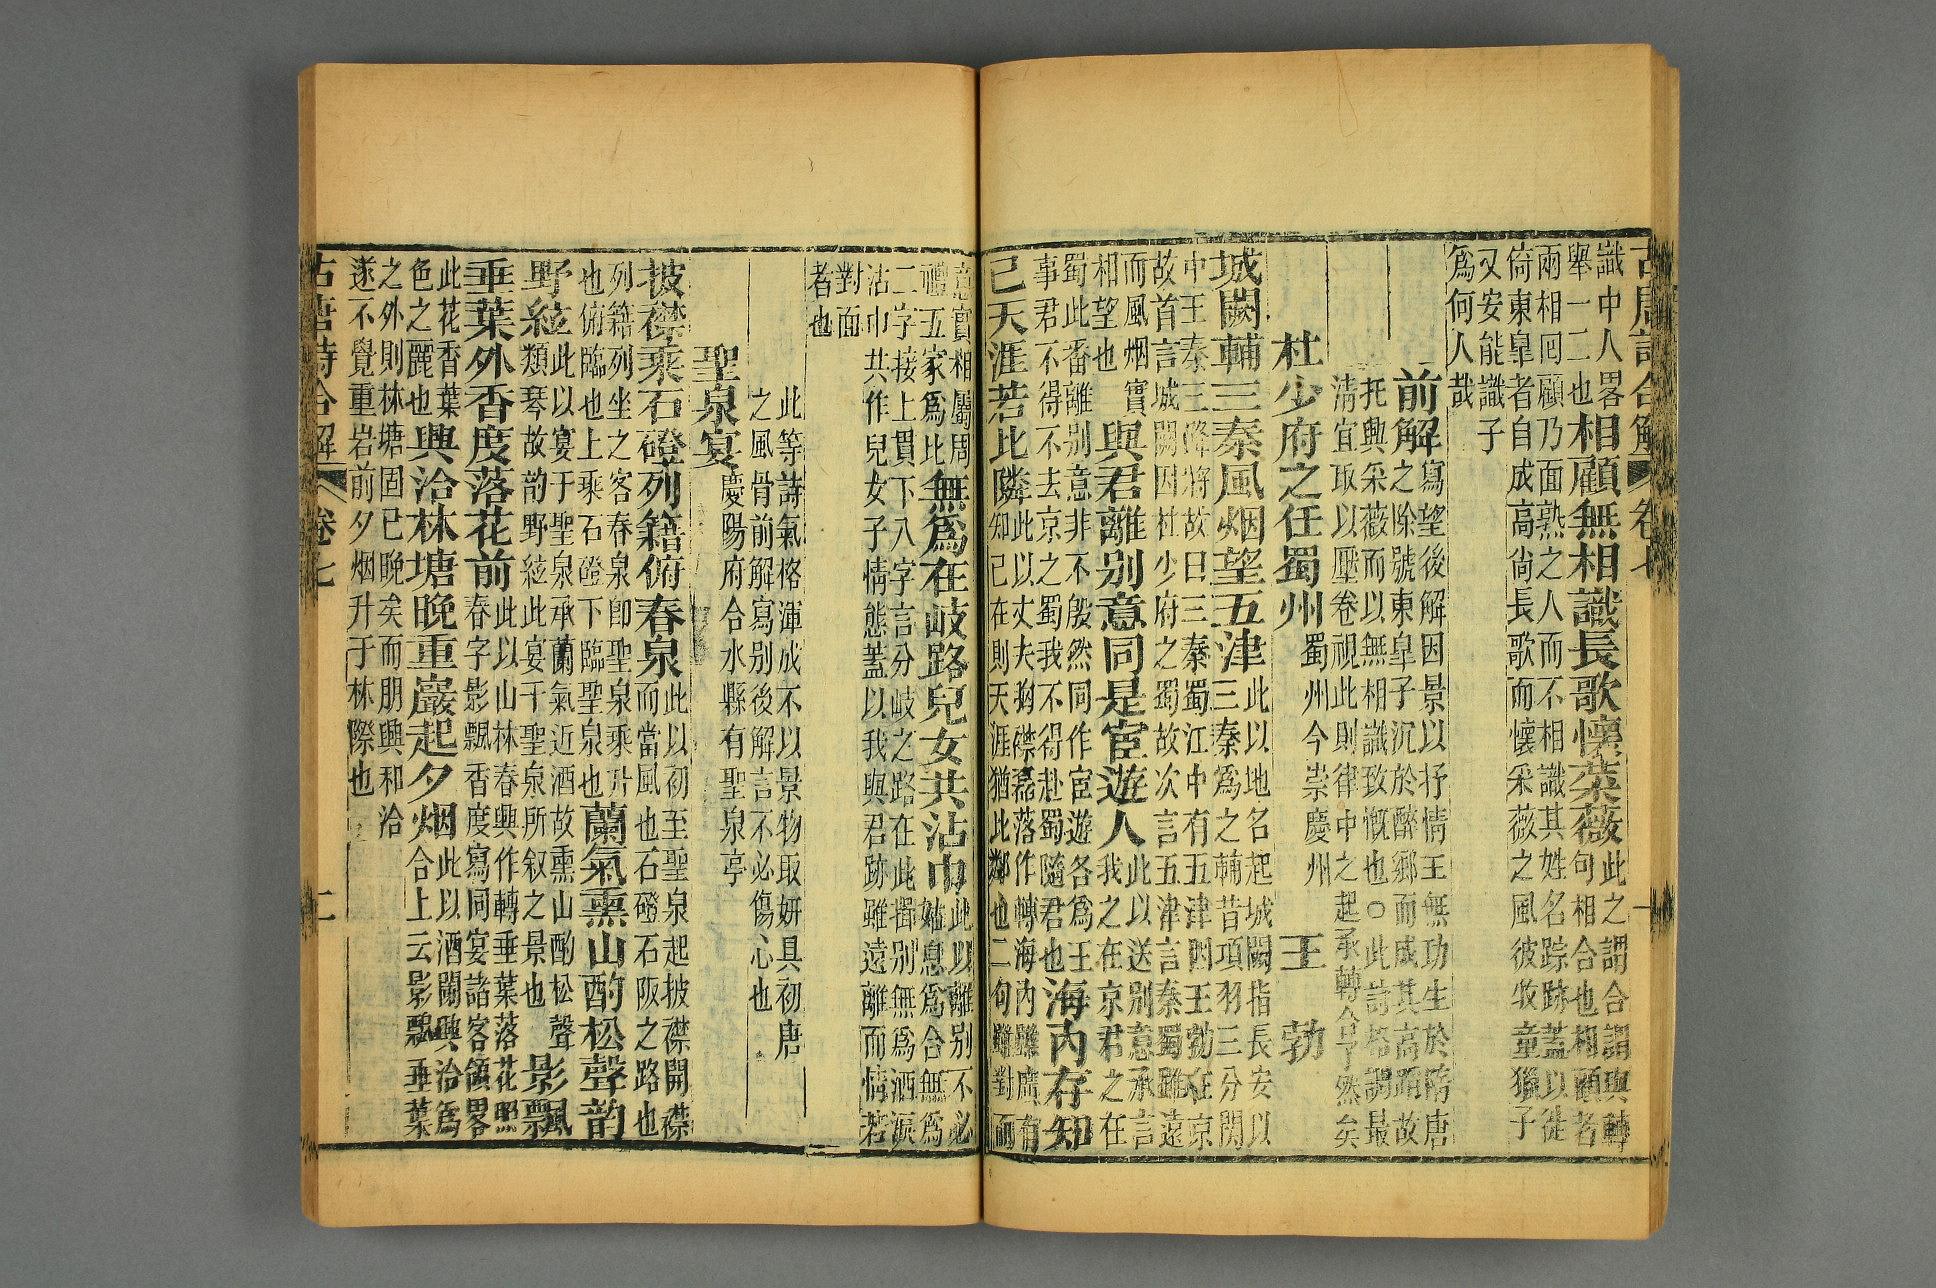 古唐詩合解 卷七 一
識中人畧
舉一二也
相顧無相識長歌懷菜薇
此之謂合調與轉
句相合也相顧者
兩相囘顧乃面熟之人而不相識其姓名踪跡蓋以徒
倚東臯者自成高尚長歌而懷采薇之風彼牧童獵子
又安能識子
為何人哉
前解
寫望後解因景以抒情王無功生於隋唐
之除號東臯子沉於醉鄉而成其高蹈故
托興采薇而以無相識致慨也○此詩格調最
清宜取以壓卷視此則律中之起承轉合了然矣
杜少府之任蜀州 蜀州今崇慶州 王 勃
城闕輔三秦風烟望五津
此以地名起城闕指長安以
三秦為之輔昔項羽三分關
中王秦三降將故曰三秦蜀江中有五津因王勃在京
故首言城闕因杜少府之蜀故次言五津言秦蜀雖遠
而風烟實
相望也
與君離别意同是宦遊人
此以送别意承言
我之在京君之在
蜀此番離别意非不殷然同作宦遊各為王
事君不得不去京之蜀我不得赴蜀隨君也
海内存知
已天涯若比隣
此以丈夫胸襟磊落作轉海内雖廣有
知已在則天涯猶此鄰也二句雖對而
意實相屬周
禮五家為比
無為在岐路兒女共沾巾
此以離别不必
姑息為合無為
二字接上貫下八字言分岐之路在此揖别無為洒淚
沾巾共作兒女子情態蓋以我與君跡雖遠離而情若
對面
者也
此等詩氣格渾成不以景物取妍具初唐
之風骨前解寫别後解言不必傷心也
聖泉宴 慶陽府合水縣有聖泉亭
披襟乘石磴列籍俯春泉
此以初至聖泉起披襟開襟
而當風也石磴石阪之路也
列籍列坐之客春泉卽聖泉乘升
也俯臨也上乘石磴下臨聖泉也
蘭氣熏山酌松聲韵
野絃
此以宴于聖泉承蘭氣近酒故熏山酌松聲
類琴故韵野絃此宴于聖泉所叙之景也
影飄
垂葉外香度落花前
此以山林春興作轉垂葉落花照
春字影飄香度寫同宴諸客領畧
此花香葉
色之麗也
興洽林塘晚重巖起夕烟
此以酒闌興洽為
合上云影飄垂葉
之外則林塘固已晚矣而朋興和洽
遂不覺重岩前夕烟升于林際也
古唐詩合解 卷七 二